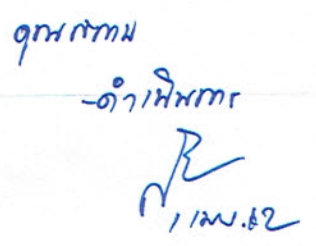 คุณสถาพ
-ดำเนินการ
1 เม.ย. 62